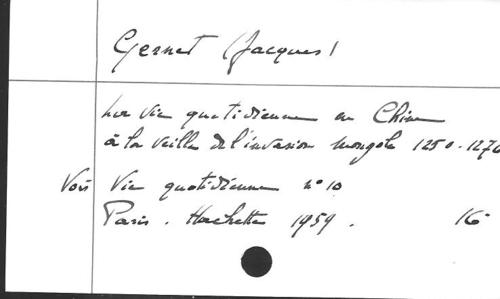 Gernet (Jacques)
La vie quotidienne en Chine
à la veille de l'invasion mongole 1250-1276
Voir Vie quotidienne n° 10
Paris. Hachette 1959. 16°